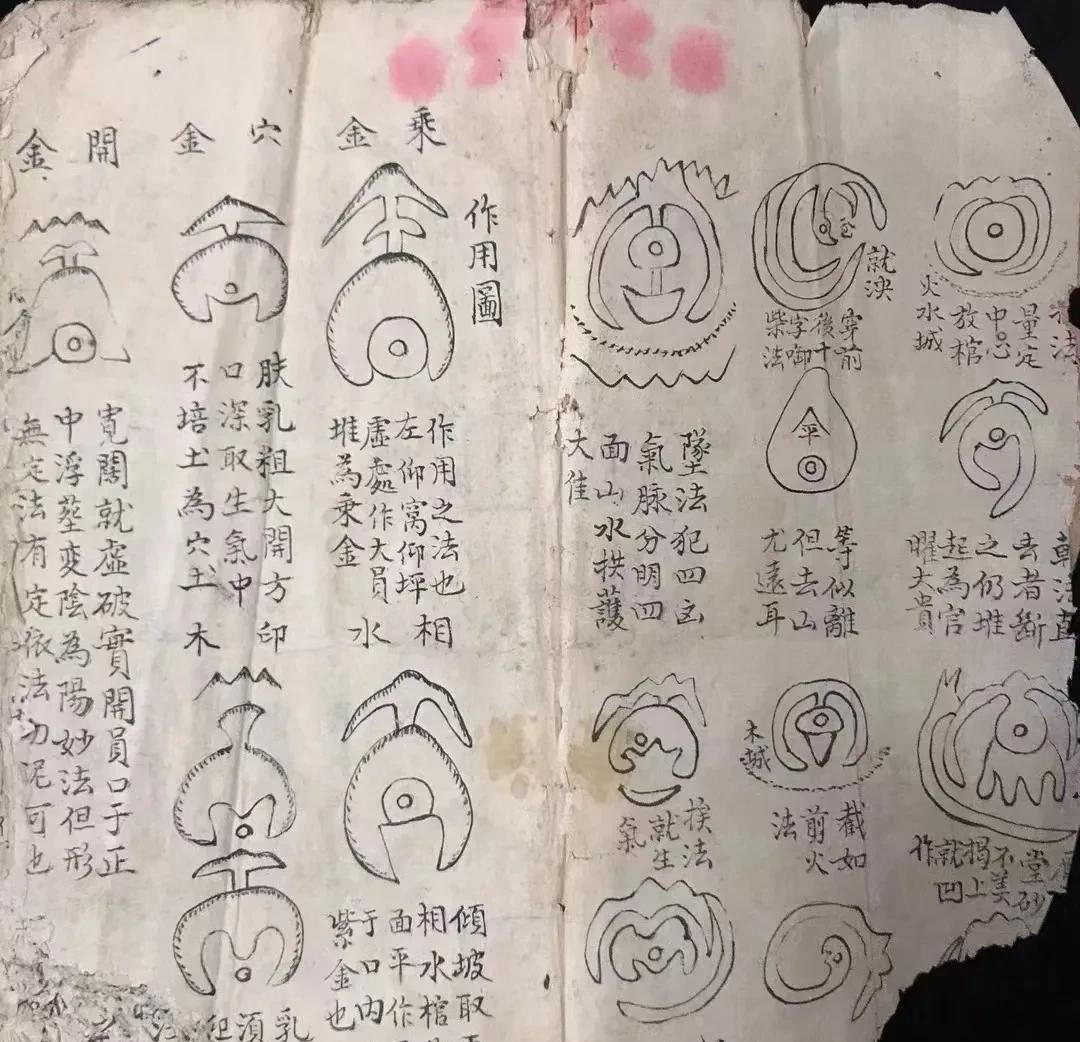 法
量定
中心
放棺
火水城
穿前
後十
字啣
柴法
金平
墜法犯四凶
氣脉分明四
面山水拱護
大佳
斬法直
去者斷
之仍堆
起為官
曜大貴
等似離
但去山
尤遠耳
堂砂
不美
揭上
就凹
作
截如
前火
法
木城
挨法
就生
氣
作用圖
乘金
作用之法也
左仰窩仰坪
虛處作大員
堆為乘金
相水
傾坡取
相水棺
面平作
于口內
紫金也
穴金
肤乳粗大開方
口深取生氣中
不培土為穴土
印木
乳
須
但
開金
寬闊就虛破實開員口于正
中浮塟变陰為陽妙法但形
無定法有定依法切泥可也